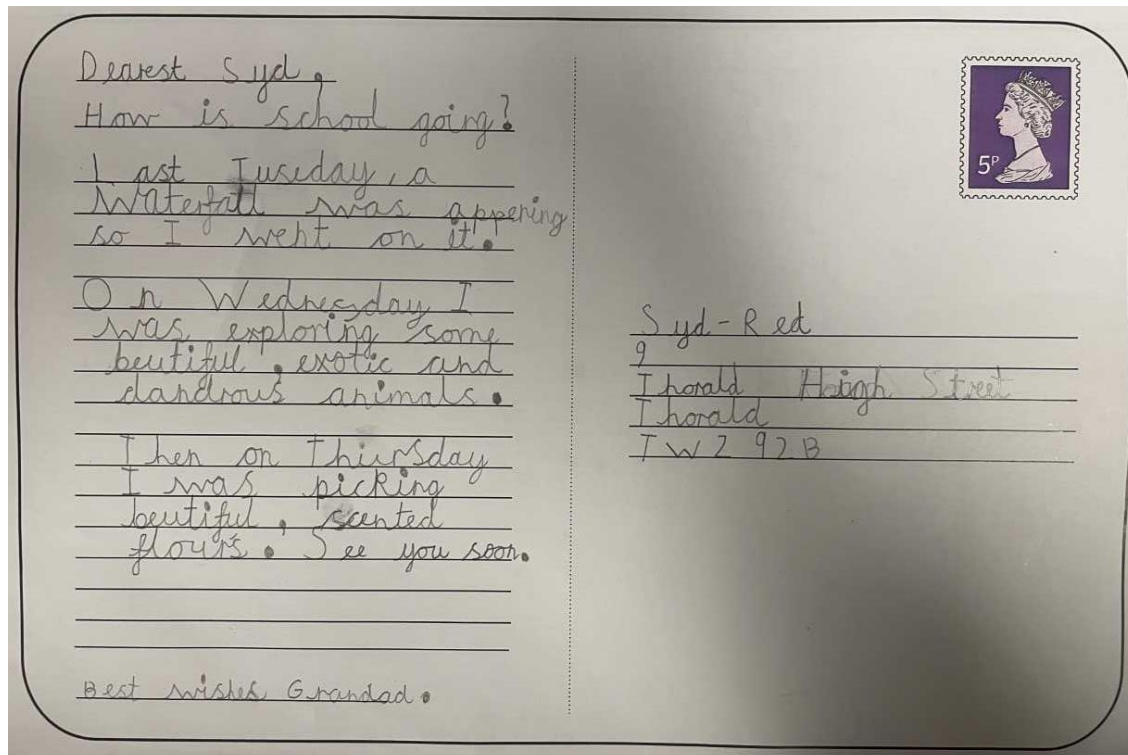 Dearest Syd,
How is school going?
Last Tuseday, a
Waterfall was appering
so I weht on it.
On Wednesday I
was exploring some
beutiful, exotic and
dandrous animals.
Then on Thursday
I was picking
beutiful, scented
flours. See you soon.
Best wishes Grandad.
5P
Syd-Red
9
Thorald High Street
Thorald
TW2 92B